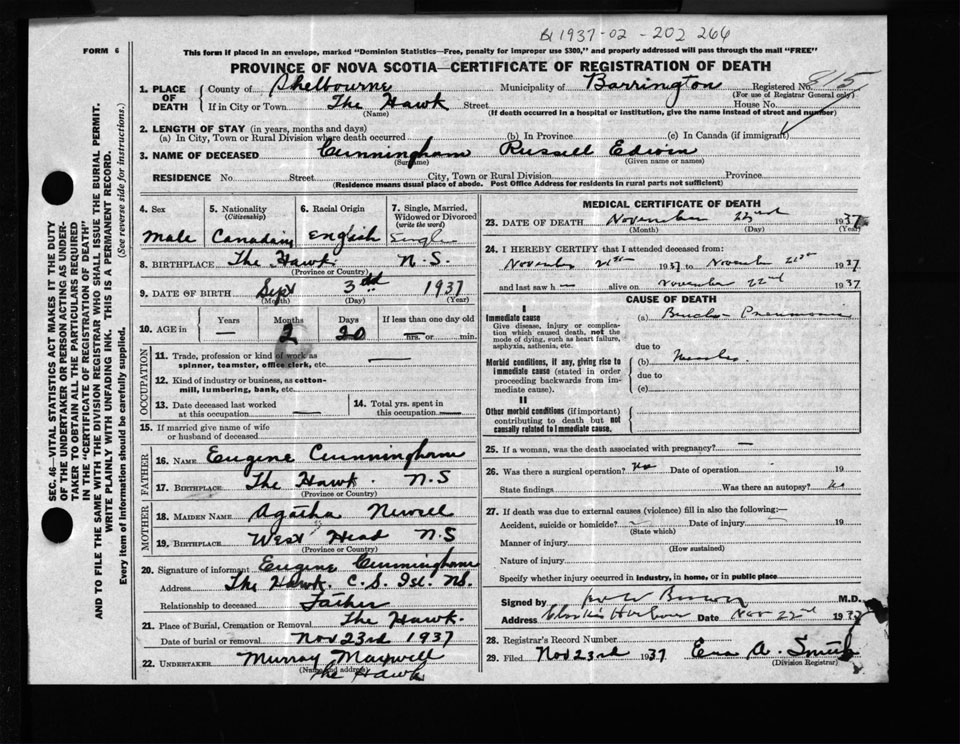 1937-02-202 264
FORM 6
This form if placed in an envelope, marked "Dominion Statistics—Free, penalty for improper use $300," and properly addressed will pass through the mail "FREE"
PROVINCE OF NOVA SCOTIA—CERTIFICATE OF REGISTRATION OF DEATH
1. PLACE OF DEATH County of Shelbourne Municipality of Barrington Registered No. 815
(For use of Registrar General only)
If in City or Town The Hawk Street House No.
(Name) (If death occurred in a hospital or institution, give the name instead of street and number)
2. LENGTH OF STAY (in years, months and days)
(a) In City, Town or Rural Division where death occurred (b) In Province (c) In Canada (if immigrant)
3. NAME OF DECEASED Cunningham Russell Edwin
(Surname) (Given name or names)
RESIDENCE No. Street City, Town or Rural Division Province
(Residence means usual place of abode. Post Office Address for residents in rural parts not sufficient)
4. Sex Male
5. Nationality (Citizenship) Canadian
6. Racial Origin English
7. Single, Married, Widowed or Divorced (write the word) Single
8. BIRTHPLACE The Hawk N.S.
(Province or Country)
9. DATE OF BIRTH Sept 3rd 1937
(Month) (Day) (Year)
10. AGE in Years — Months 2 Days 20 If less than one day old — hrs. or min.
OCCUPATION
11. Trade, profession or kind of work as spinner, teamster, office clerk, etc. —
12. Kind of industry or business, as cotton-mill, lumbering, bank, etc.
13. Date deceased last worked at this occupation — 14. Total yrs. spent in this occupation —
15. If married give name of wife or husband of deceased
FATHER
16. NAME Eugene Cunningham
17. BIRTHPLACE The Hawk. N.S
(Province or Country)
MOTHER
18. MAIDEN NAME Agatha Newell
19. BIRTHPLACE West Head N.S
(Province or Country)
20. Signature of informant Eugene Cunningham
Address The Hawk. C.S. Isl. NS.
Relationship to deceased Father
21. Place of Burial, Cremation or Removal The Hawk.
Date of burial or removal Nov 23rd 1937
22. UNDERTAKER Murray Maxwell
(Name and address)
The Hawk
MEDICAL CERTIFICATE OF DEATH
23. DATE OF DEATH November 22nd 1937
(Month) (Day) (Year)
24. I HEREBY CERTIFY that I attended deceased from:
November 21st 1937 to November 1937
and last saw h— alive on November 22nd 1937
CAUSE OF DEATH
I
Immediate cause (a) Broncho-Pneumonia
Give disease, injury or complication which caused death, not the mode of dying, such as heart failure, asphyxia, asthenia, etc.
due to
Morbid conditions, if any, giving rise to immediate cause (stated in order proceeding backwards from immediate cause). (b) Measles
due to
(c)
II
Other morbid conditions (if important) contributing to death but not causally related to immediate cause.
25. If a woman, was the death associated with pregnancy? —
26. Was there a surgical operation? No Date of operation 19
State findings Was there an autopsy? No
27. If death was due to external causes (violence) fill in also the following:—
Accident, suicide or homicide? Date of injury 19
(State which)
Manner of injury
(How sustained)
Nature of injury
Specify whether injury occurred in industry, in home, or in public place
Signed by Brown M.D.
Address Clark's Harbour Date Nov 22nd 1937
28. Registrar's Record Number
29. Filed Nov 23rd 1937 Eva A. Smith
(Division Registrar)
SEC. 46—VITAL STATISTICS ACT MAKES IT THE DUTY
OF THE UNDERTAKER OR PERSON ACTING AS UNDER-
TAKER TO OBTAIN ALL THE PARTICULARS REQUIRED
IN THE "CERTIFICATE OF REGISTRATION OF DEATH"
AND TO FILE THE SAME WITH THE DIVISION REGISTRAR WHO SHALL ISSUE THE BURIAL PERMIT.
WRITE PLAINLY WITH UNFADING INK. THIS IS A PERMANENT RECORD.
Every item of information should be carefully supplied. (See reverse side for instructions.)